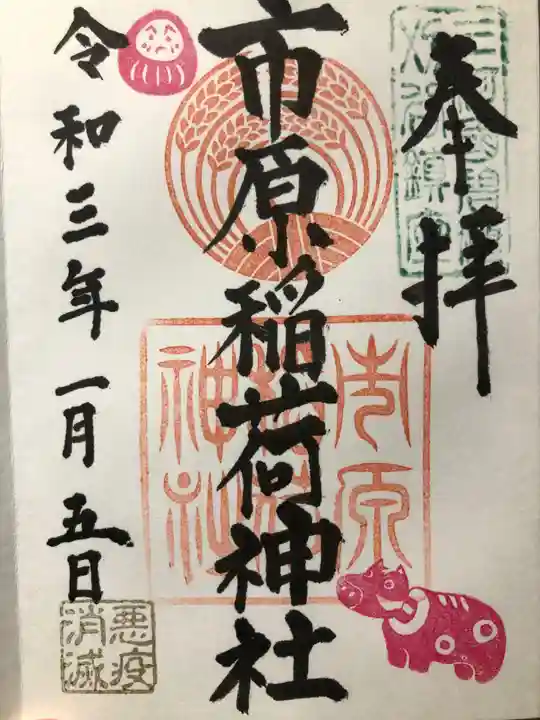 奉拝
市原稲荷神社
市原
稲荷
神社
令和三年一月五日
悪疫
消滅